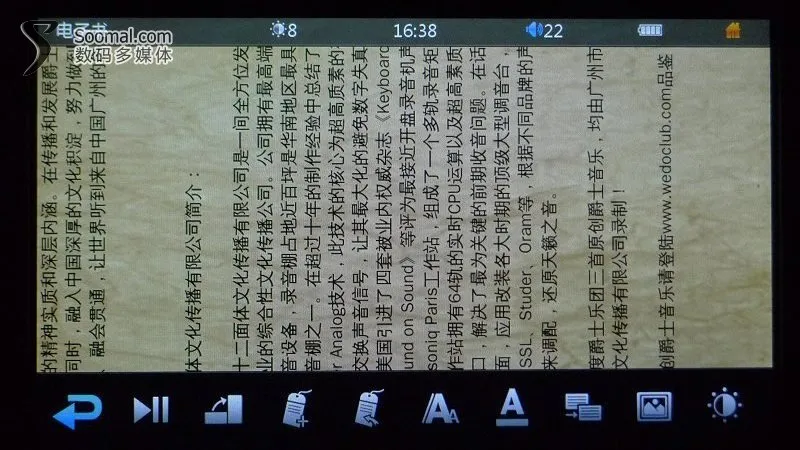 Soomal.com
数码多媒体
8
16:38
22
的精神实质和深层内涵。在传播和发展爵士
同时，融入中国深厚的文化积淀，努力做到
、融会贯通，让世界听到来自中国广州的
体文化传播有限公司简介：
十二面体文化传播有限公司是一间全方位发
业的综合性文化传播公司。公司拥有最高端
音设备，录音棚占地近百坪是华南地区最具
音棚之一。在超过十年的制作经验中总结了
r Analog技术，此技术的核心为超高质素的
交换声音信号，让其最大化的避免数字失真
美国引进了四套被业内权威杂志《Keyboard
und on Sound》等评为最接近开盘录音机声
soniq Paris工作站，组成了一个多轨录音矩
作站拥有64轨的实时CPU运算以及超高素质
口，解决了最为关键的前期收音问题。在话
面，应用改装各大时期的顶级大型调音台，
SSL、Studer、Oram等，根据不同品牌的声
来调配，还原天籁之音。
度爵士乐团三首原创爵士音乐，均由广州市
文化传播有限公司录制！
创爵士音乐请登陆www.wedoclub.com品鉴